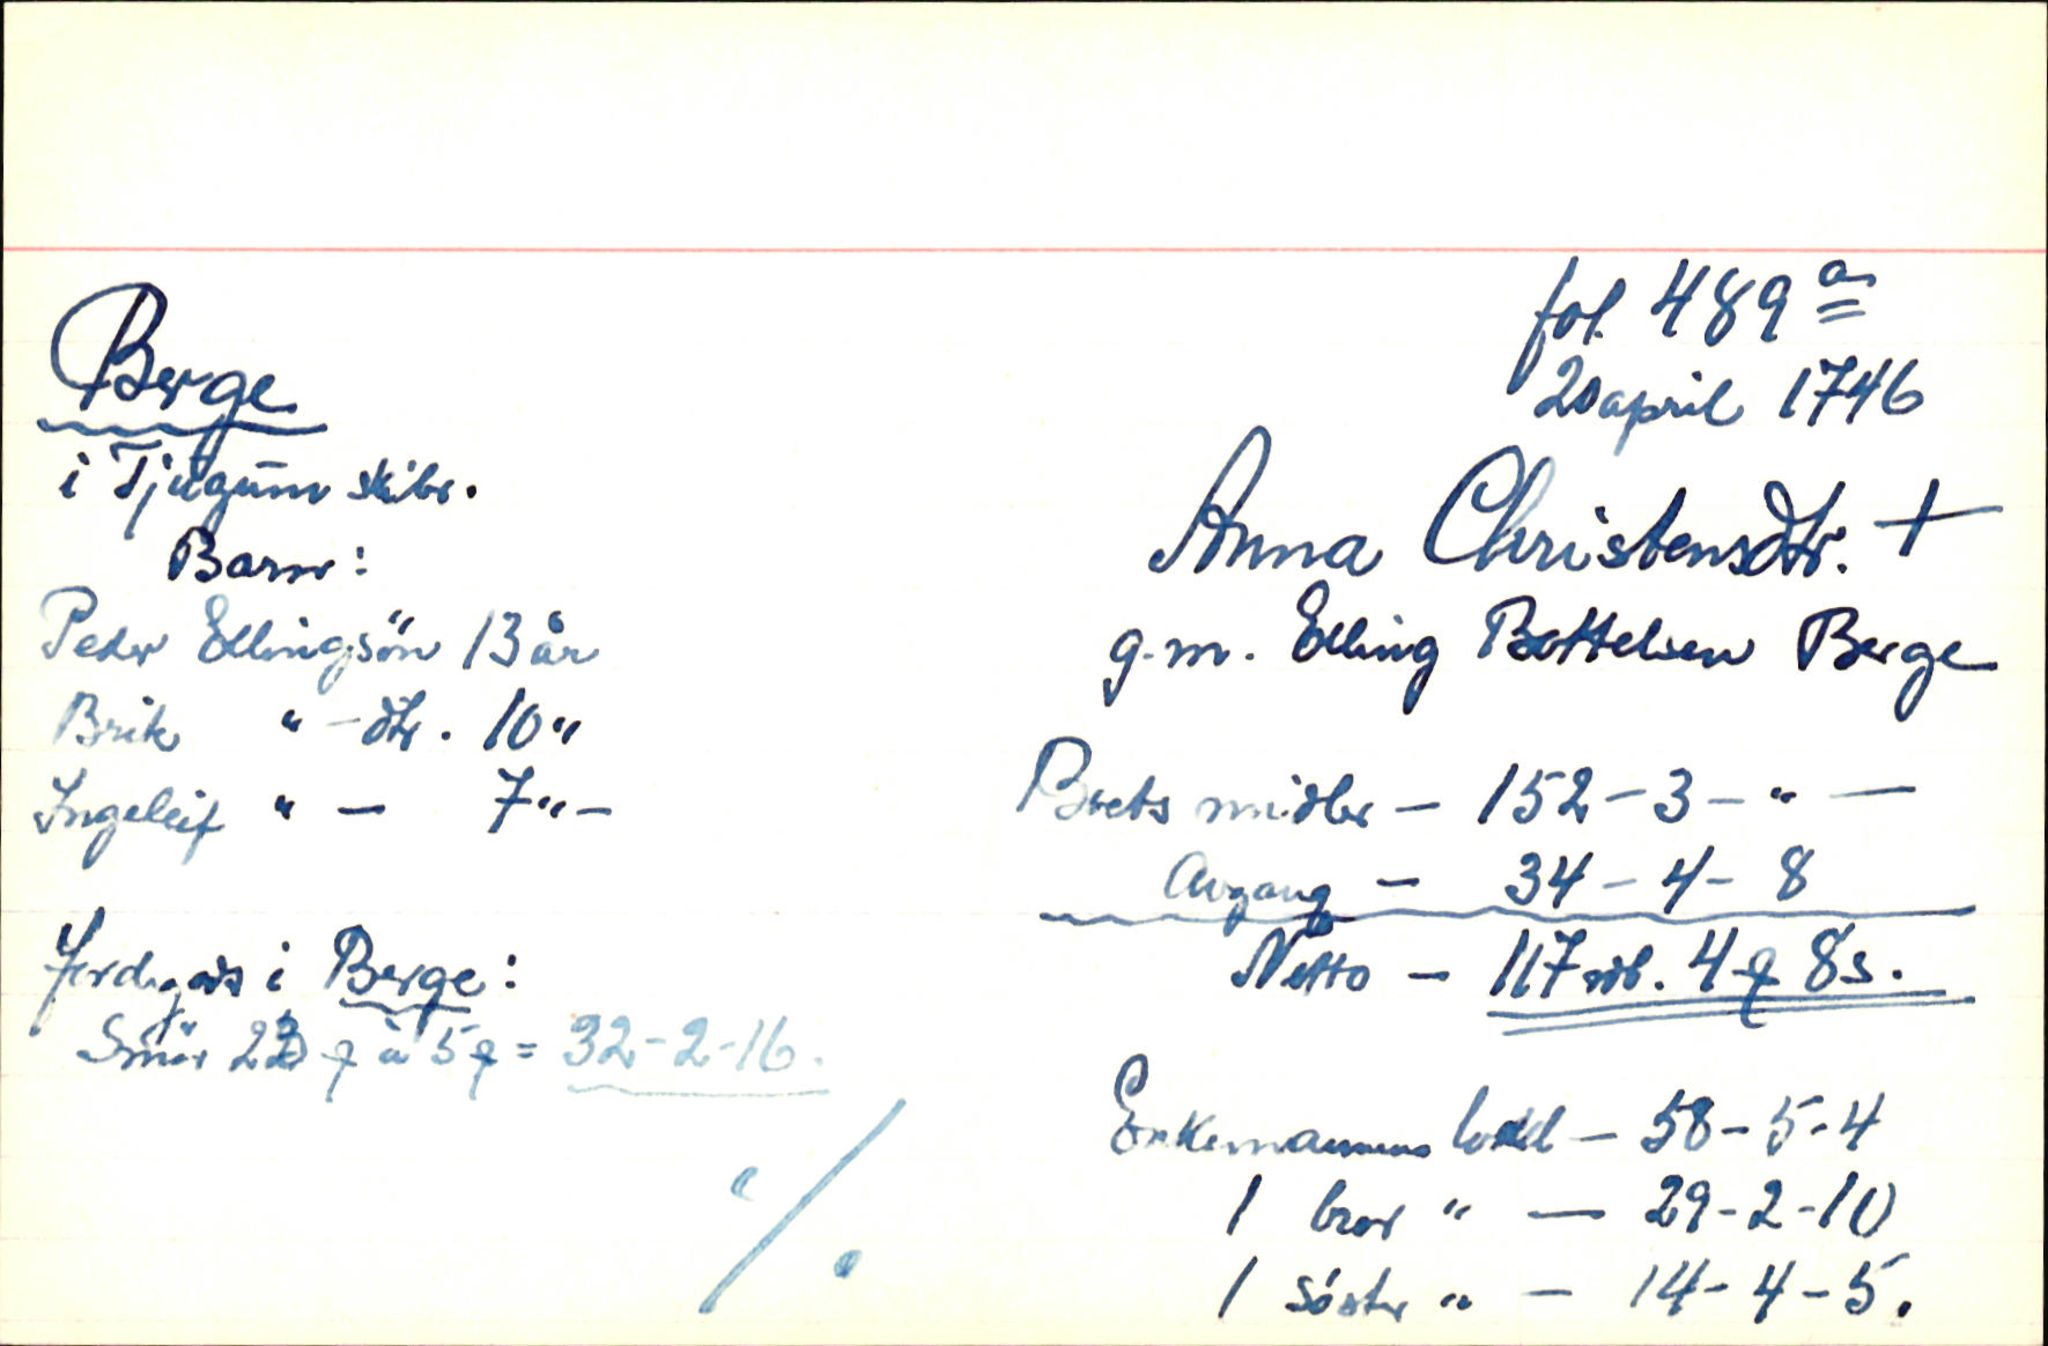 fol. 489 a
20 april 1746
Berge
i Tjugum skibr.
Barn:
Peder Ellingsön 13 år
Brite " - dtr. 10 "
Ingeleif " - 7 " -
Jordegods i Berge:
Smör à 5 = 32-2-16.
%
Anna Christensdtr. +
g.m. Elling Bottelsen Berge
Boets midler - 152 - 3 - " -
Avgang - 34 - 4 - 8
Netto - 117 rdl. 4 8 s.
Enkemannens lodd - 58 - 5 - 4
1 bror " - 29 - 2 - 10
1 söster " - 14 - 4 - 5.